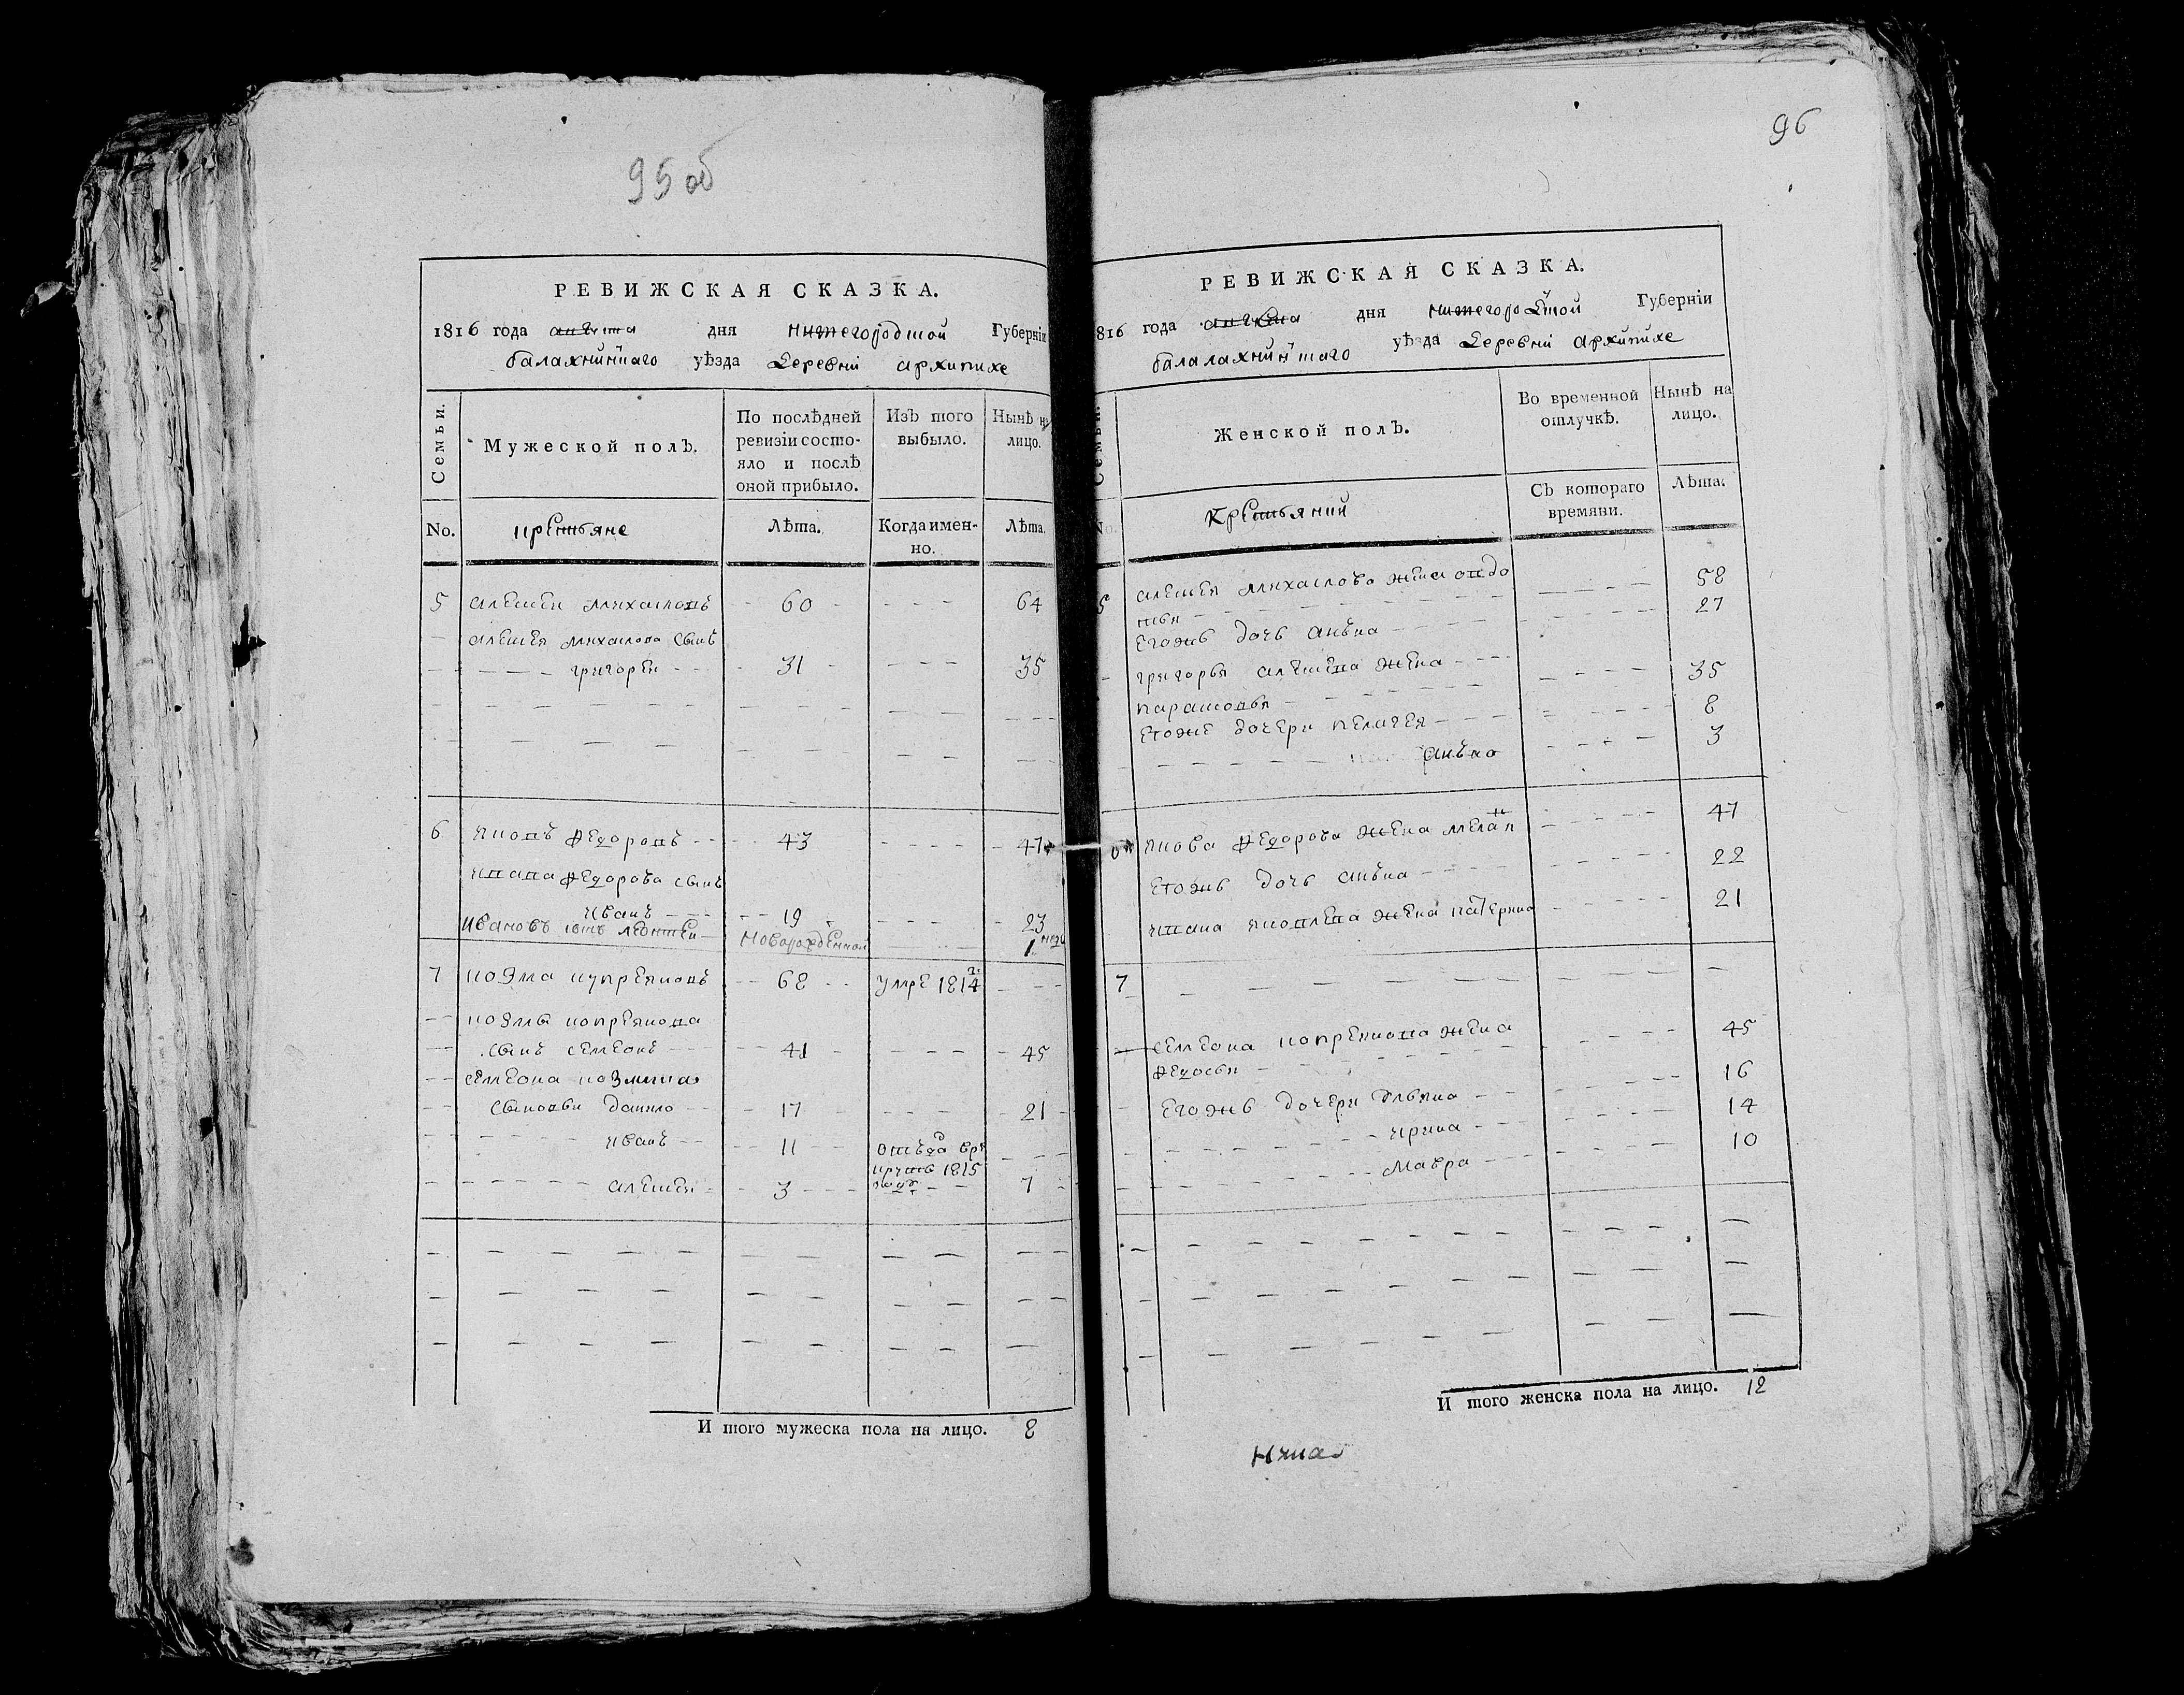 95 об
РЕВИЖСКАЯ СКАЗКА.
1816 года августа дня нижегородской Губерніи
балахнинскаго уѣзда деревни архипихе
Семьи.
Мужеской полъ.
По послѣдней ревизіи состо-
яло и послѣ
оной прибыло.
Изъ того
выбыло.
Нынѣ на
лицо.
No.
крестьяне
Лѣта.
Когда имен-
но.
Лѣта.
5 алексеи михаиловъ 60 64
алексея михаилова сынъ
григореи 31 35
6 яковъ федоровъ 43 47
якова федорова сынъ
иванъ 19 23
ивановъ сынъ леонтеи новорожденнои 1
7 козма купреяновъ 68 умре 1814
козмы копреянова
сынъ семеонъ 41 45
семеона козмина
сыновьи данило 17 21
иванъ 11 отъдо врѣ
круты 1815
году
алексеи 3 7
И того мужеска пола на лицо. 8
96
РЕВИЖСКАЯ СКАЗКА.
1816 года августа дня нижегородской Губерніи
балалахнинскаго уѣзда деревни архипихе
Семьи.
Женской полъ.
Во временной
отлучкѣ.
Нынѣ на
лицо.
No.
крестьянки
Съ котораго
времяни.
Лѣта.
5 алексея михаилова жена овдо 58
тья
егожъ дочь анъна 27
григорья алексева жена 35
парасковья
егоже дочери пелагея 8
анъна 3
6 якова федорова жена мелан 47
егожъ дочь анъна 22
ивана яковлева жена катерина 21
7
семеона копреянова жена 45
федосья
егожъ дочери ульяна 16
ирина 14
мавра 10
И того женска пола на лицо. 12